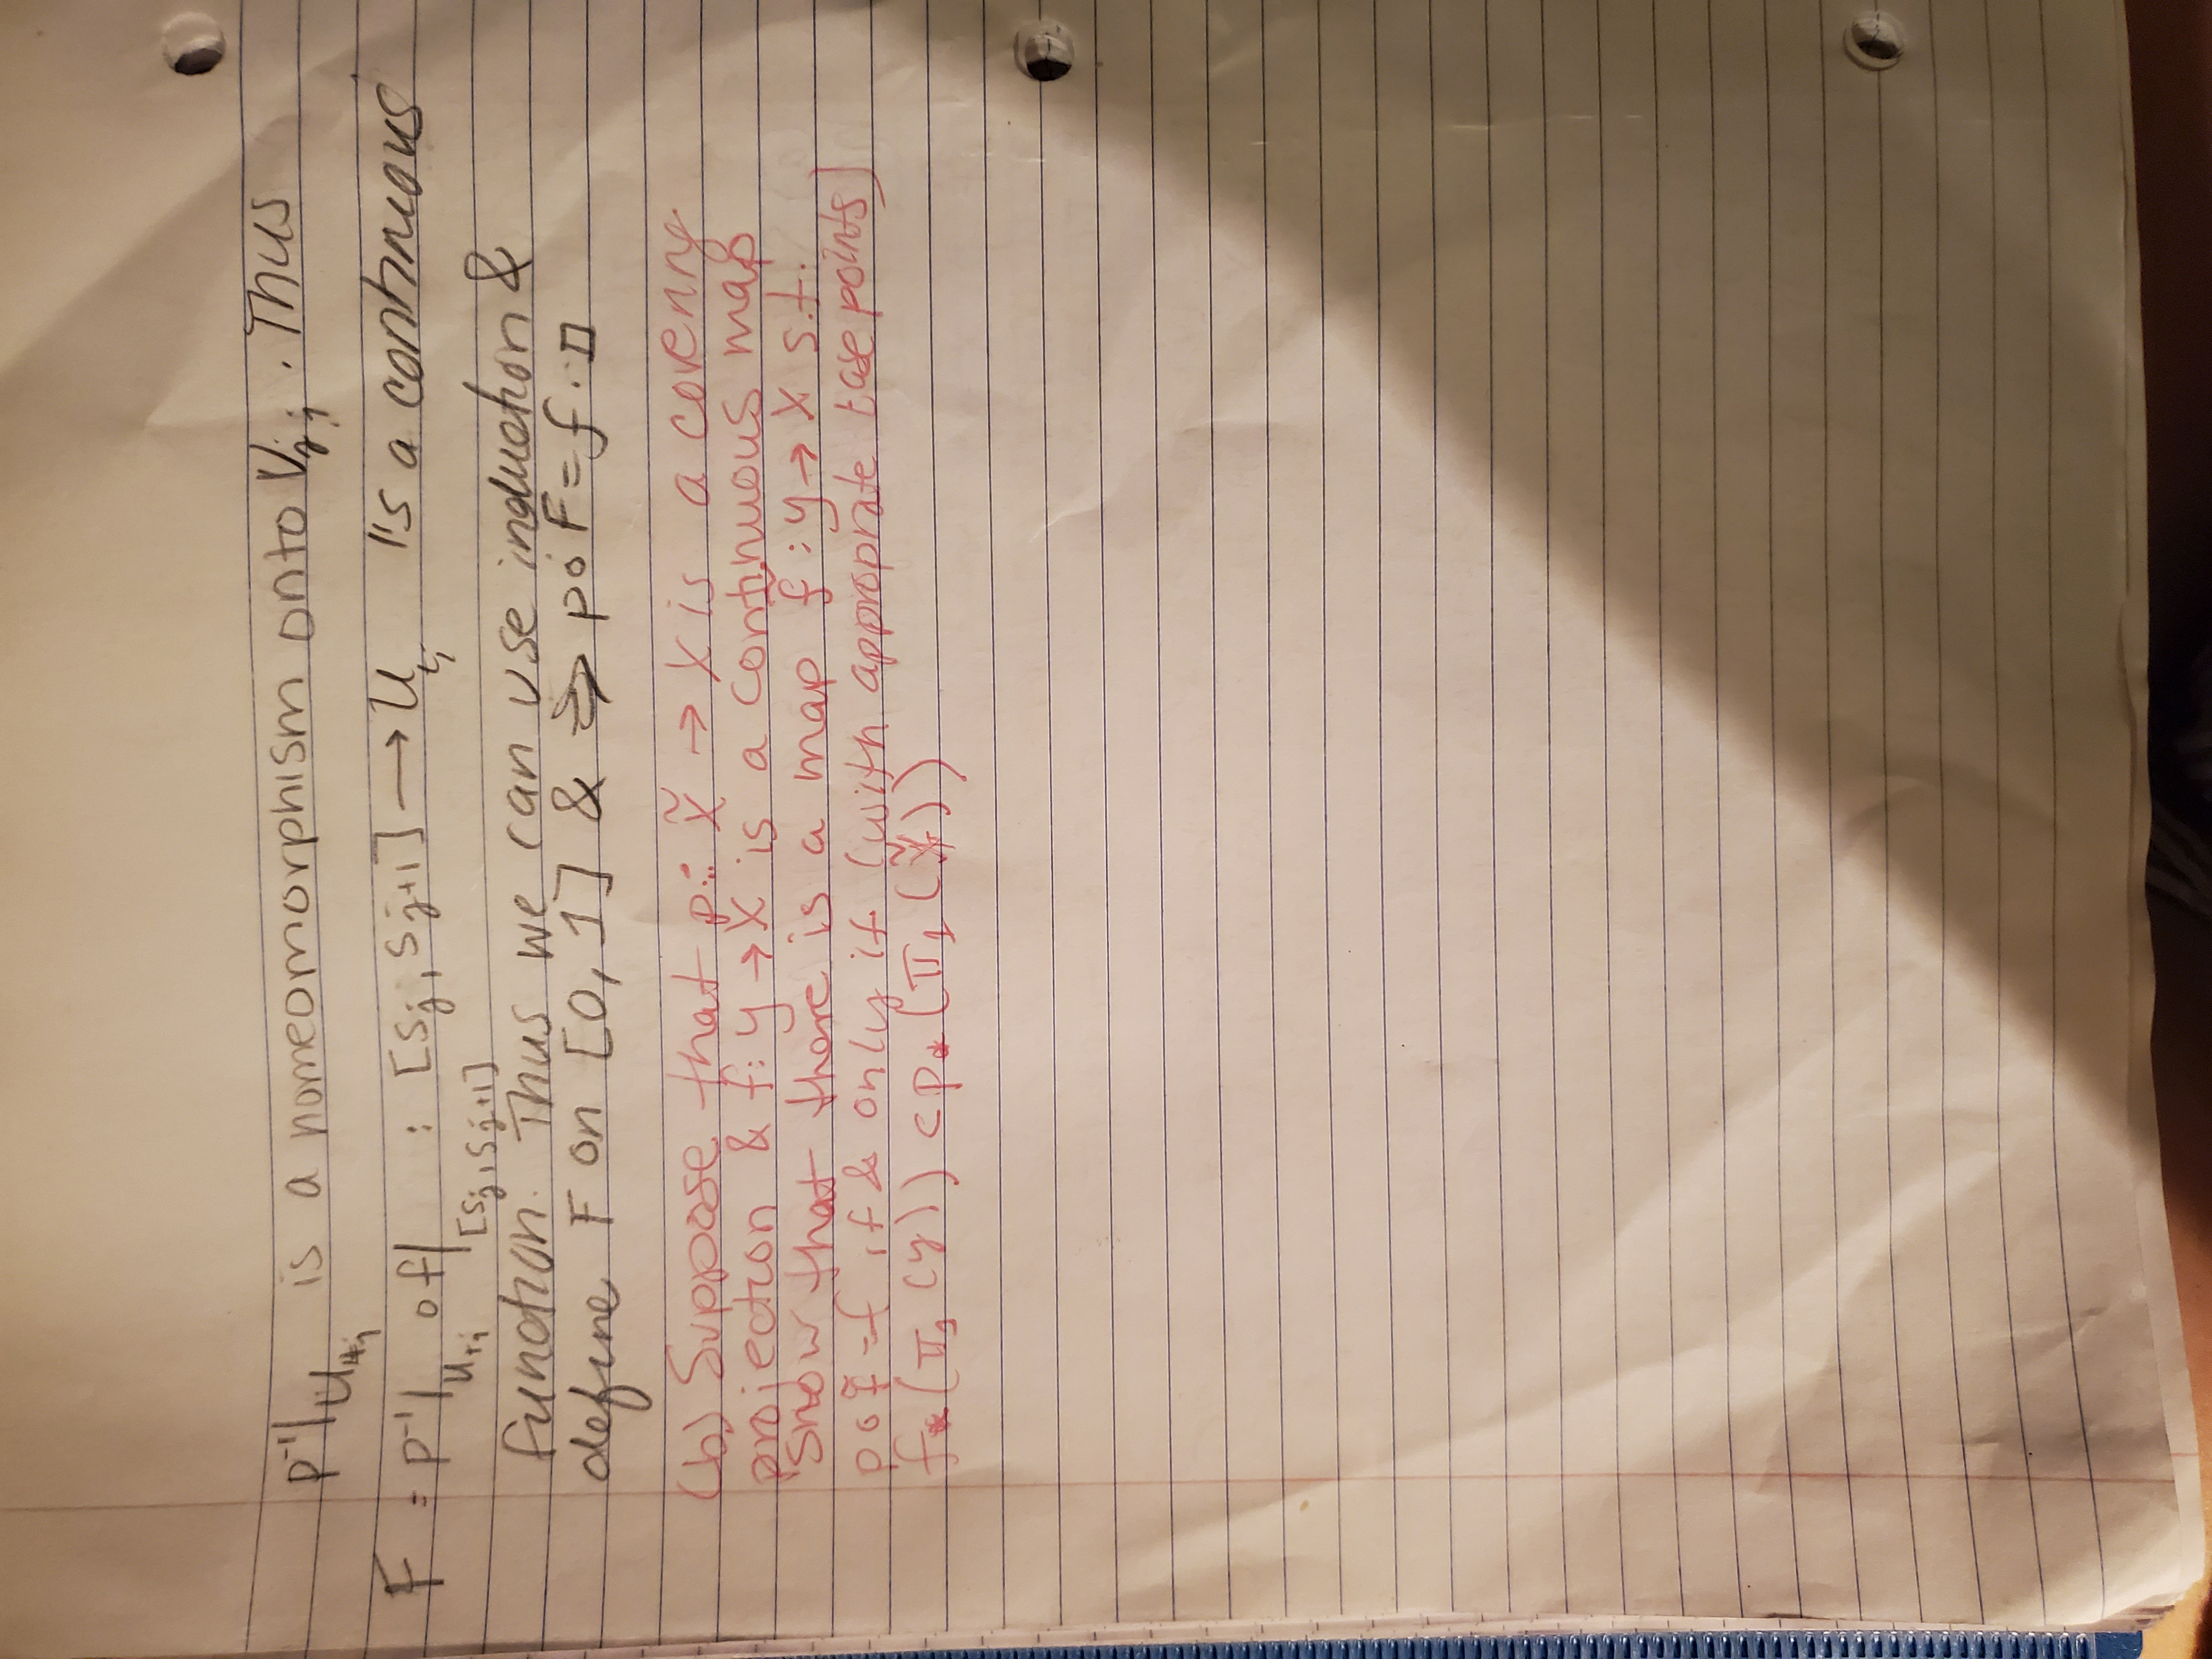 p⁻¹|U₁ⱼ is a homeomorphism onto Vⱼ,ⱼ. Thus
F = p⁻¹|U₁ⱼ ∘ f|[Sⱼ, Sⱼ₊₁] : [Sⱼ, Sⱼ₊₁] → U₁ⱼ is a continuous
function. Thus we can use induction &
define F on [0, 1] & ⇒ p∘F = f. □
(b) Suppose that p: X̃ → X is a covering
projection & f: y → X is a continuous map
Show that there is a map f̃: y → X s.t.
p∘f̃ = f if & only if (with appropriate basepoints)
f*(π₁(y)) ⊂ p*(π₁(X̃))